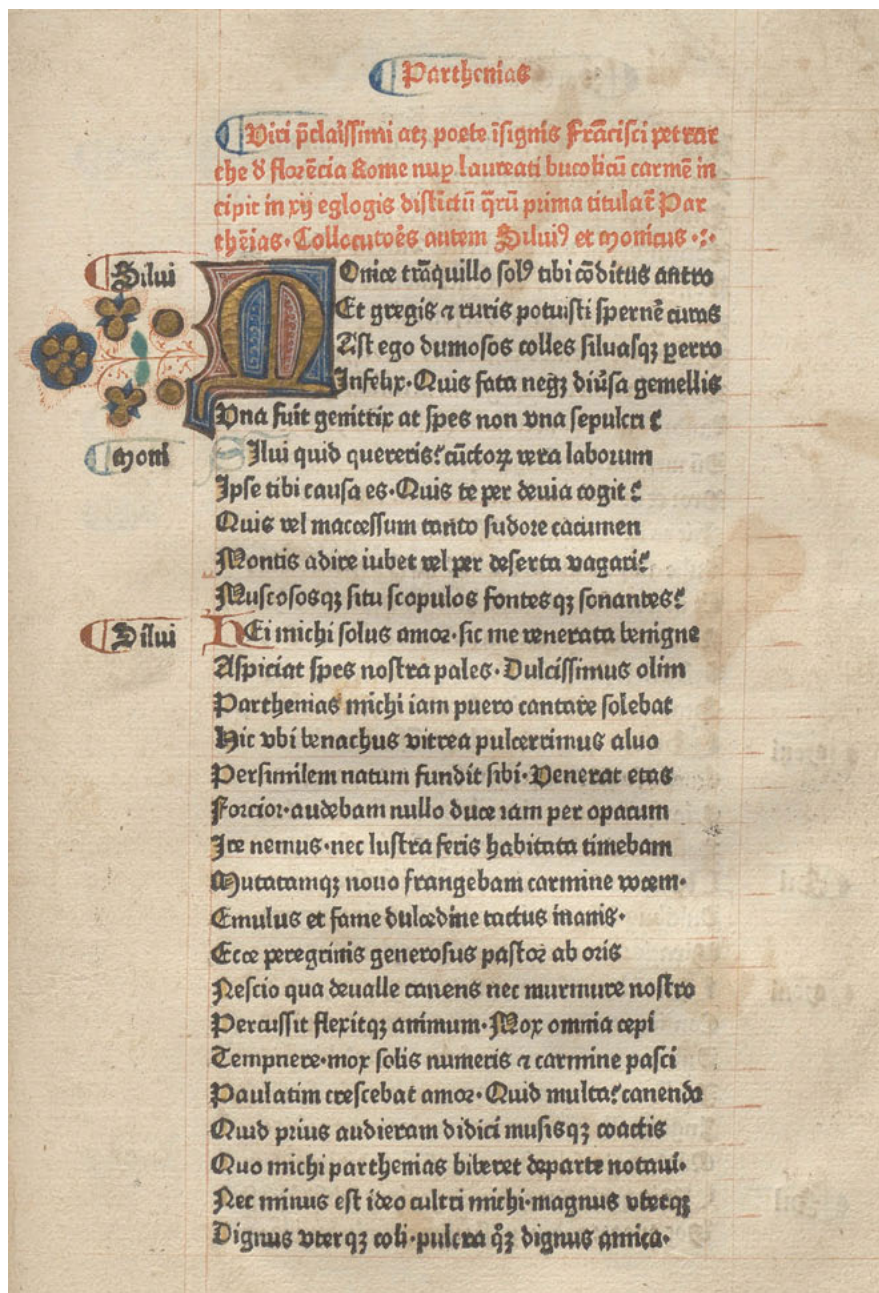 Parthenias
Viri p̄claīssimi atqꝫ poete īsignis Francīsci petrar
che d̄ florēcia Rome nuꝑ laureati bucolicū carmē in
cipit in xij eglogis distīctū q̄rū prima titulat̄ Par
thēias. Collocutōēs autem Siluiꝰ et monicus .:.
Silui
MOnice trāquillo solꝰ tibi cōditus antro
Et gregis ⁊ ruris potuisti spernē curas
Ast ego dumosos colles siluasqꝫ ꝑerro
Infelix. Quis fata negꝫ diūsa gemellis
Vna fuit genittix at spes non vna sepulcri ?
Moni
SIlui quid quereris? cūctoꝝ vera laborum
Ipse tibi causa es. Quis te per deuia cogit ?
Quis vel inaccessum tanto sudore cacumen
Montis adire iubet vel per deserta vagari?
Muscososqꝫ situ scopulos fontesqꝫ sonantes?
Silui
HEi michi solus amor. sic me venerata benigne
Aspiciat spes nostra pales. Dulcissimus olim
Parthenias michi iam puero cantare solebat
Hic vbi benachus vitrea pulcerrimus aluo
Persimilem natum fundit sibi. Venerat etas
Forcior. audebam nullo duce iam per opacum
Ire nemus. nec lustra feris habitata timebam
Mutatamqꝫ nouo frangebam carmine vocem.
Emulus et fame dulcedine tactus inanis.
Ecce peregrinis generosus pastor ab oris
Nescio qua deualle canens nec murmure nostro
Percussit flexitqꝫ animum. Mox omnia cepi
Tempnere. mox solis numeris ⁊ carmine pasci
Paulatim crescebat amor. Quid multa? canendo
Quid prius audieram didici musisqꝫ coactis
Quo michi parthenias biberet departe notaui.
Nec minus est ideo cultꝰ michi. magnus vterqꝫ
Dignus vterqꝫ coli. pulcra qͦqꝫ dignus amica.